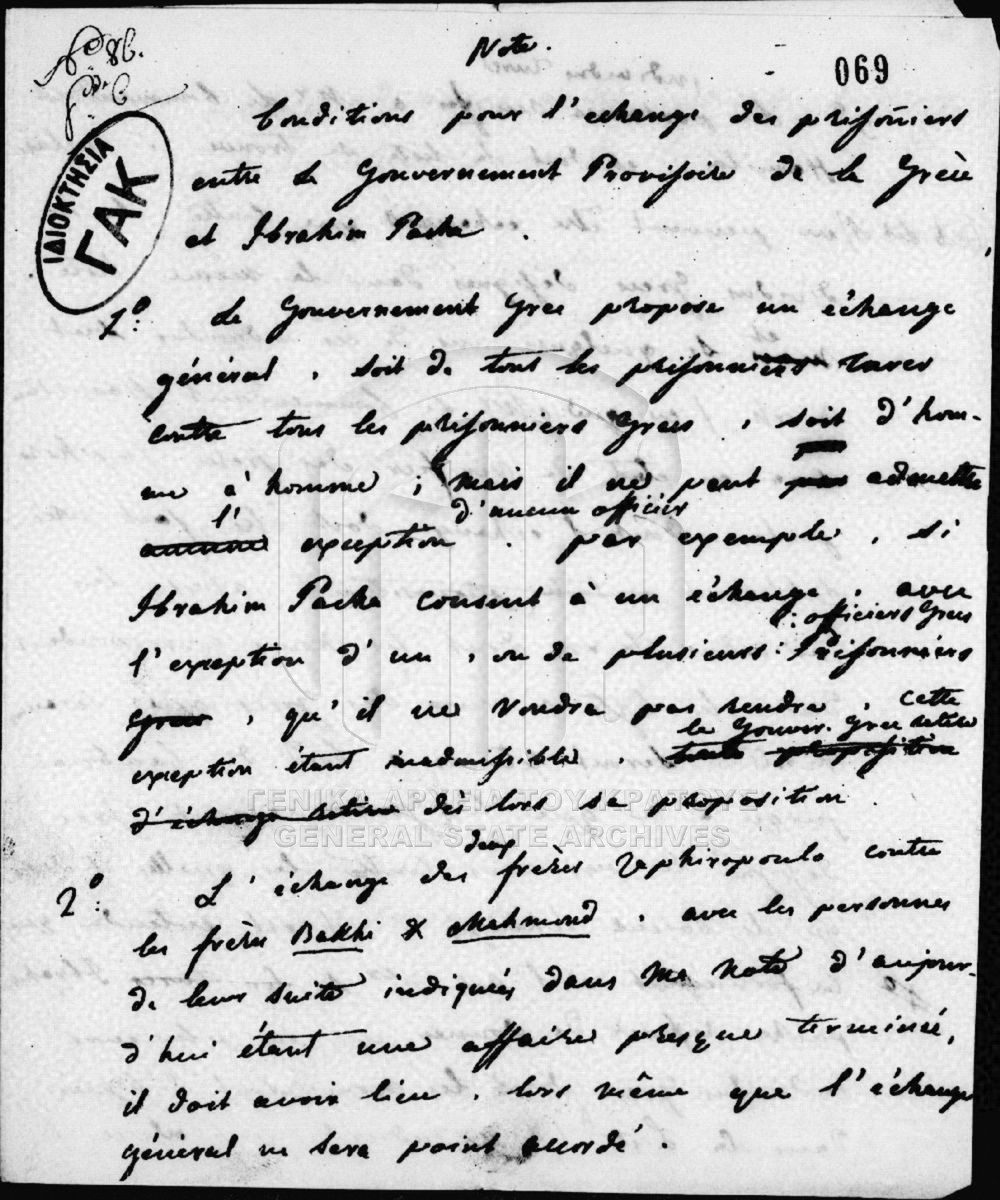 Note.
069
Conditions pour l'echange des prisoñiers
entre le Gouvernement Provisoire de la Grèce
et Ibrahim Pacha.
ΙΔΙΟΚΤΗΣΙΑ
ΓΑΚ
1º: Le Gouvernement Grec propose un échange
général, soit de tous les prisonniers turcs
contre tous les prisonniers Grecs, soit d'hom-
me à homme; mais il ne peut pas admettre
l' d'aucun officier
aucune exception. par exemple, si
Ibrahim Pacha consent à un échange, avec
: officiers Grecs
l'exception d'un, ou de plusieurs: Prisonniers
Grecs, qu'il ne voudra pas rendre, cette
le Gouver. Grec retire
exception étant inadmissible, toute proposition
d'échange retire dès lors sa proposition.
ΓΕΝΙΚΑ ΑΡΧΕΙΑ ΤΟΥ ΚΡΑΤΟΥΣ
GENERAL STATE ARCHIVES
deux
2º: L'échange des frères Zaphiropoulo contre
les frères Bekhi & Mahmoud, avec les personnes
de leur suite indiquées dans ma Note d'aujour-
d'hui étant une affaire presque terminée,
il doit avoir lieu, lors même que l'échange
général ne sera point accordé.